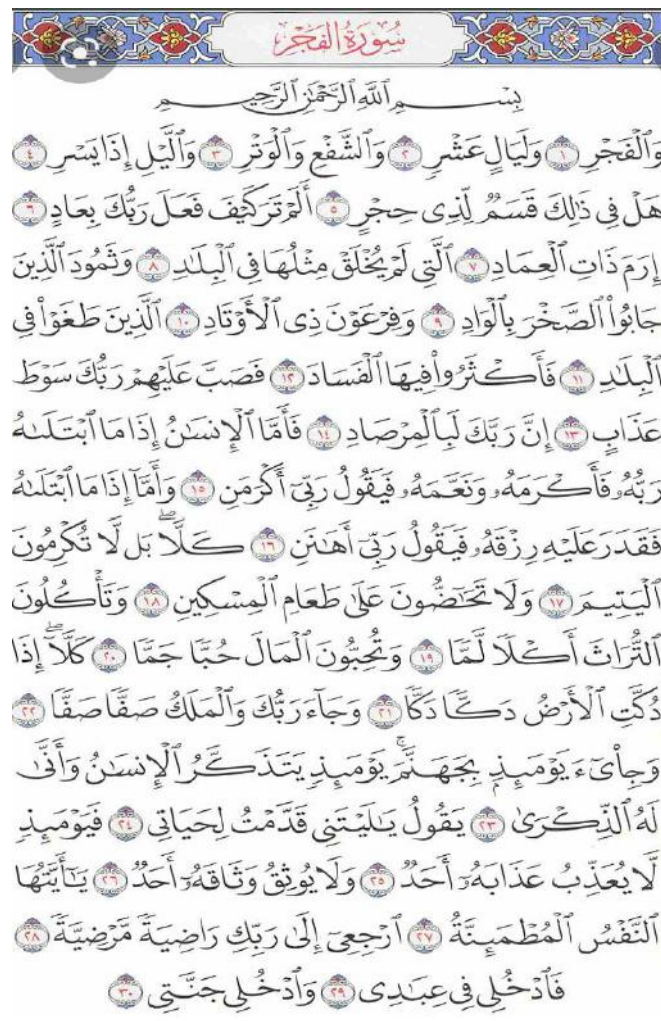 سُورَةُ الْفَجْرِ
بِسْمِ ٱللَّهِ ٱلرَّحْمَٰنِ ٱلرَّحِيمِ
وَٱلْفَجْرِ ١ وَلَيَالٍ عَشْرٍ ٢ وَٱلشَّفْعِ وَٱلْوَتْرِ ٣ وَٱلَّيْلِ إِذَا يَسْرِ ٤
هَلْ فِى ذَٰلِكَ قَسَمٌ لِّذِى حِجْرٍ ٥ أَلَمْ تَرَ كَيْفَ فَعَلَ رَبُّكَ بِعَادٍ ٦
إِرَمَ ذَاتِ ٱلْعِمَادِ ٧ ٱلَّتِى لَمْ يُخْلَقْ مِثْلُهَا فِى ٱلْبِلَٰدِ ٨ وَثَمُودَ ٱلَّذِينَ
جَابُوا۟ ٱلصَّخْرَ بِٱلْوَادِ ٩ وَفِرْعَوْنَ ذِى ٱلْأَوْتَادِ ١٠ ٱلَّذِينَ طَغَوْا۟ فِى
ٱلْبِلَٰدِ ١١ فَأَكْثَرُوا۟ فِيهَا ٱلْفَسَادَ ١٢ فَصَبَّ عَلَيْهِمْ رَبُّكَ سَوْطَ
عَذَابٍ ١٣ إِنَّ رَبَّكَ لَبِٱلْمِرْصَادِ ١٤ فَأَمَّا ٱلْإِنسَٰنُ إِذَا مَا ٱبْتَلَىٰهُ
رَبُّهُۥ فَأَكْرَمَهُۥ وَنَعَّمَهُۥ فَيَقُولُ رَبِّىٓ أَكْرَمَنِ ١٥ وَأَمَّآ إِذَا مَا ٱبْتَلَىٰهُ
فَقَدَرَ عَلَيْهِ رِزْقَهُۥ فَيَقُولُ رَبِّىٓ أَهَٰنَنِ ١٦ كَلَّا ۖ بَل لَّا تُكْرِمُونَ
ٱلْيَتِيمَ ١٧ وَلَا تَحَٰٓضُّونَ عَلَىٰ طَعَامِ ٱلْمِسْكِينِ ١٨ وَتَأْكُلُونَ
ٱلتُّرَاثَ أَكْلًا لَّمًّا ١٩ وَتُحِبُّونَ ٱلْمَالَ حُبًّا جَمًّا ٢٠ كَلَّآ ۖ إِذَا
دُكَّتِ ٱلْأَرْضُ دَكًّا دَكًّا ٢١ وَجَآءَ رَبُّكَ وَٱلْمَلَكُ صَفًّا صَفًّا ٢٢
وَجِا۟ىٓءَ يَوْمَئِذٍۭ بِجَهَنَّمَ ۚ يَوْمَئِذٍ يَتَذَكَّرُ ٱلْإِنسَٰنُ وَأَنَّىٰ
لَهُ ٱلذِّكْرَىٰ ٢٣ يَقُولُ يَٰلَيْتَنِى قَدَّمْتُ لِحَيَاتِى ٢٤ فَيَوْمَئِذٍ
لَّا يُعَذِّبُ عَذَابَهُۥٓ أَحَدٌ ٢٥ وَلَا يُوثِقُ وَثَاقَهُۥٓ أَحَدٌ ٢٦ يَٰٓأَيَّتُهَا
ٱلنَّفْسُ ٱلْمُطْمَئِنَّةُ ٢٧ ٱرْجِعِىٓ إِلَىٰ رَبِّكِ رَاضِيَةً مَّرْضِيَّةً ٢٨
فَٱدْخُلِى فِى عِبَٰدِى ٢٩ وَٱدْخُلِى جَنَّتِى ٣٠